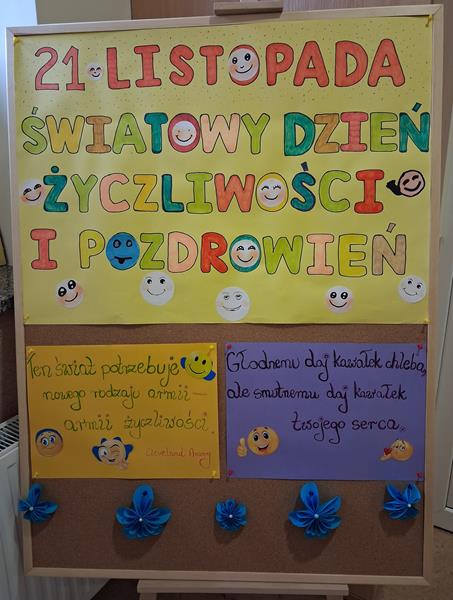 21 LISTOPADA
ŚWIATOWY DZIEŃ
ŻYCZLIWOŚCI
I POZDROWIEŃ
Ten świat potrzebuje
nowego rodzaju armii –
armii życzliwości.
Cleveland Amory
Głodnemu daj kawałek chleba,
ale smutnemu daj kawałek
twojego serca.